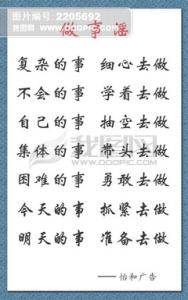 图片编号: 2205692
我图网 WWW.OOOPIC.COM
做事谣
复杂的事 细心去做
不会的事 学着去做
自己的事 抽空去做
集体的事 带头去做
困难的事 勇敢去做
今天的事 抓紧去做
明天的事 准备去做
我图网
www.ooopic.com
——怡和广告